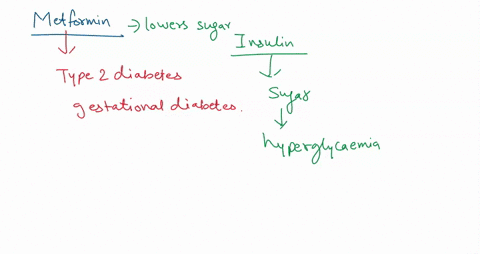 Metformin → lowers sugar
Insulin
↓
↓
Type 2 diabetes
Sugar
gestational diabetes.
↓
hyperglycaemia